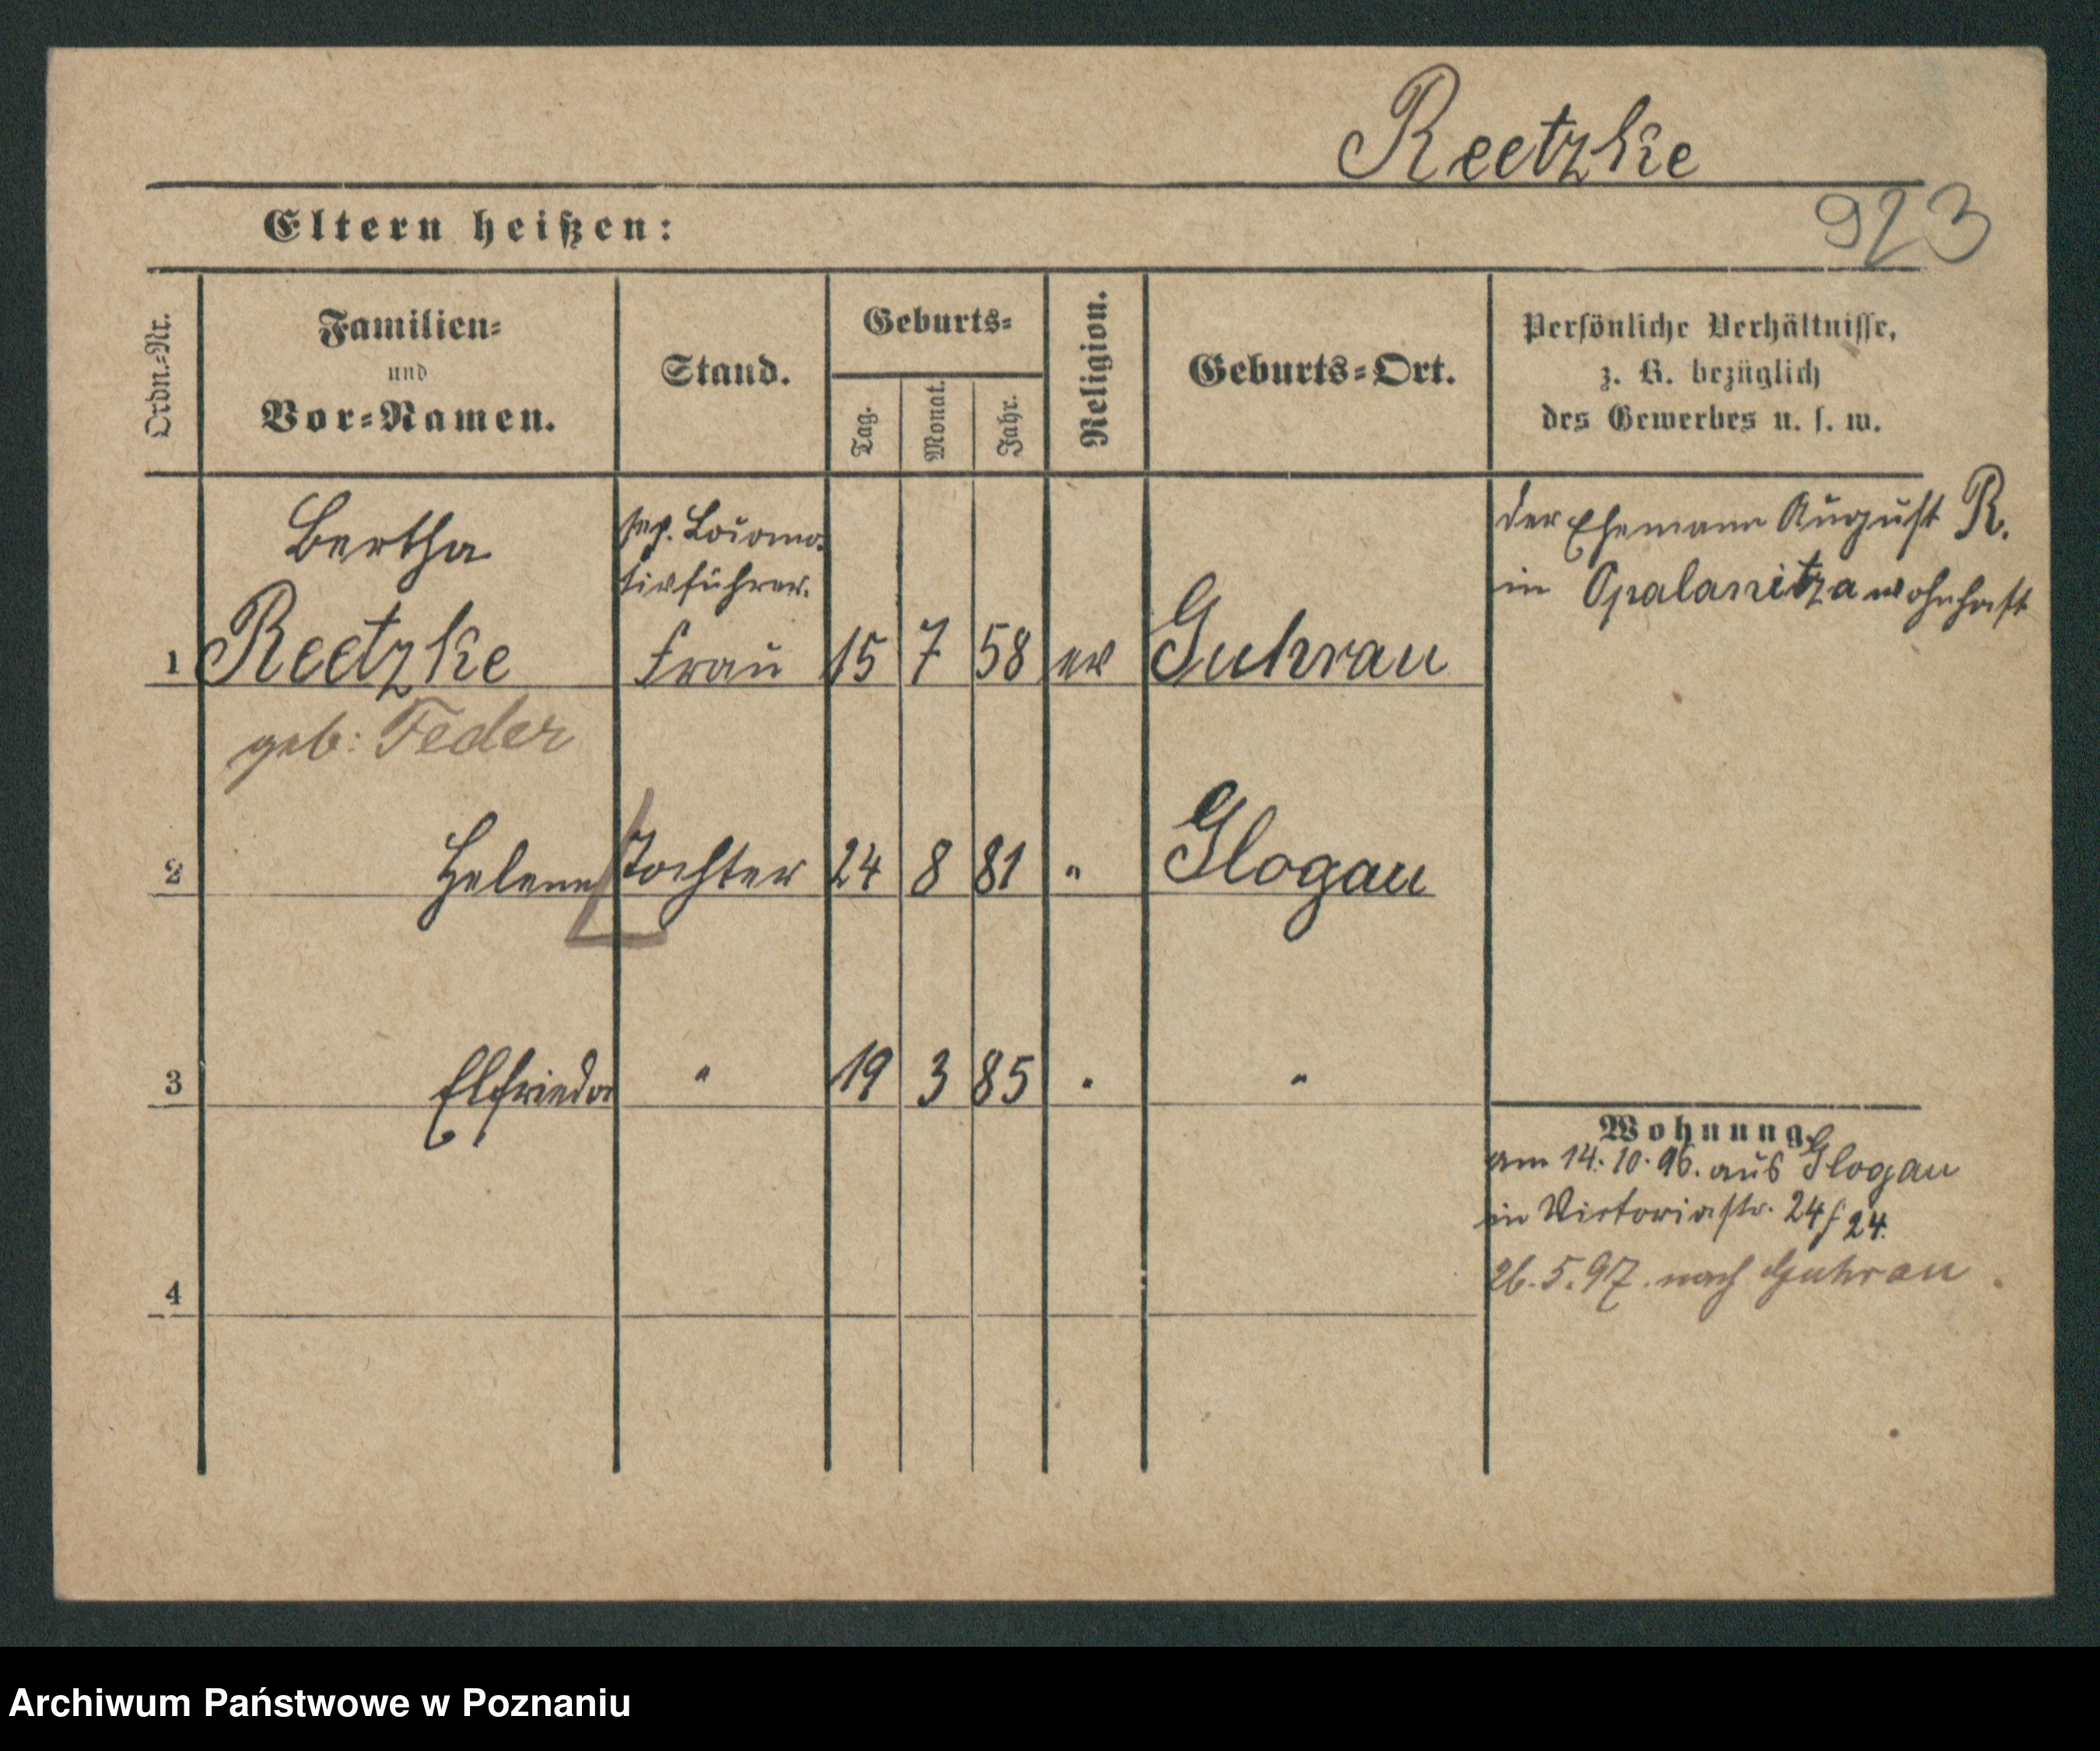 Reetzke
923
Eltern heißen:
Ordn.=Nr.
Familien=
und
Vor=Namen.
Stand.
Geburts=
Tag.
Monat.
Jahr.
Religion.
Geburts=Ort.
Persönliche Verhältnisse,
z. B. bezüglich
des Gewerbes u. s. w.
Bertha
sep. Locomo-
tivführer.
1 Reetzke Frau 15 7 58 ev Guhrau
geb: Feder
der Ehemann August R.
in Opalanitza wohnhaft
2 Helene Tochter 24 8 81 " Glogau
3 Elfriede " 19 3 85 " "
4
Wohnung.
am 14. 10. 96. aus Glogau
in Victoriastr. 24 f 24.
26. 5. 97. nach Guhrau
Archiwum Państwowe w Poznaniu